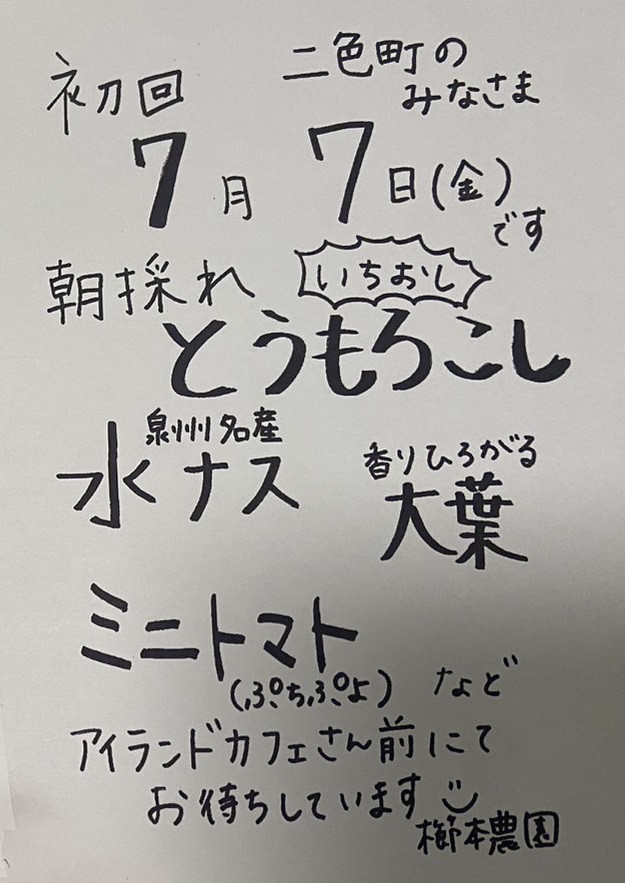 二色町の
みなさま
初回
7月 7日(金)
です
朝採れ いちおし
とうもろこし
泉州名産
水ナス
香りひろがる
大葉
ミニトマト
(ぷちぷよ) など
アイランドカフェさん前にて
お待ちしています
櫛本農園